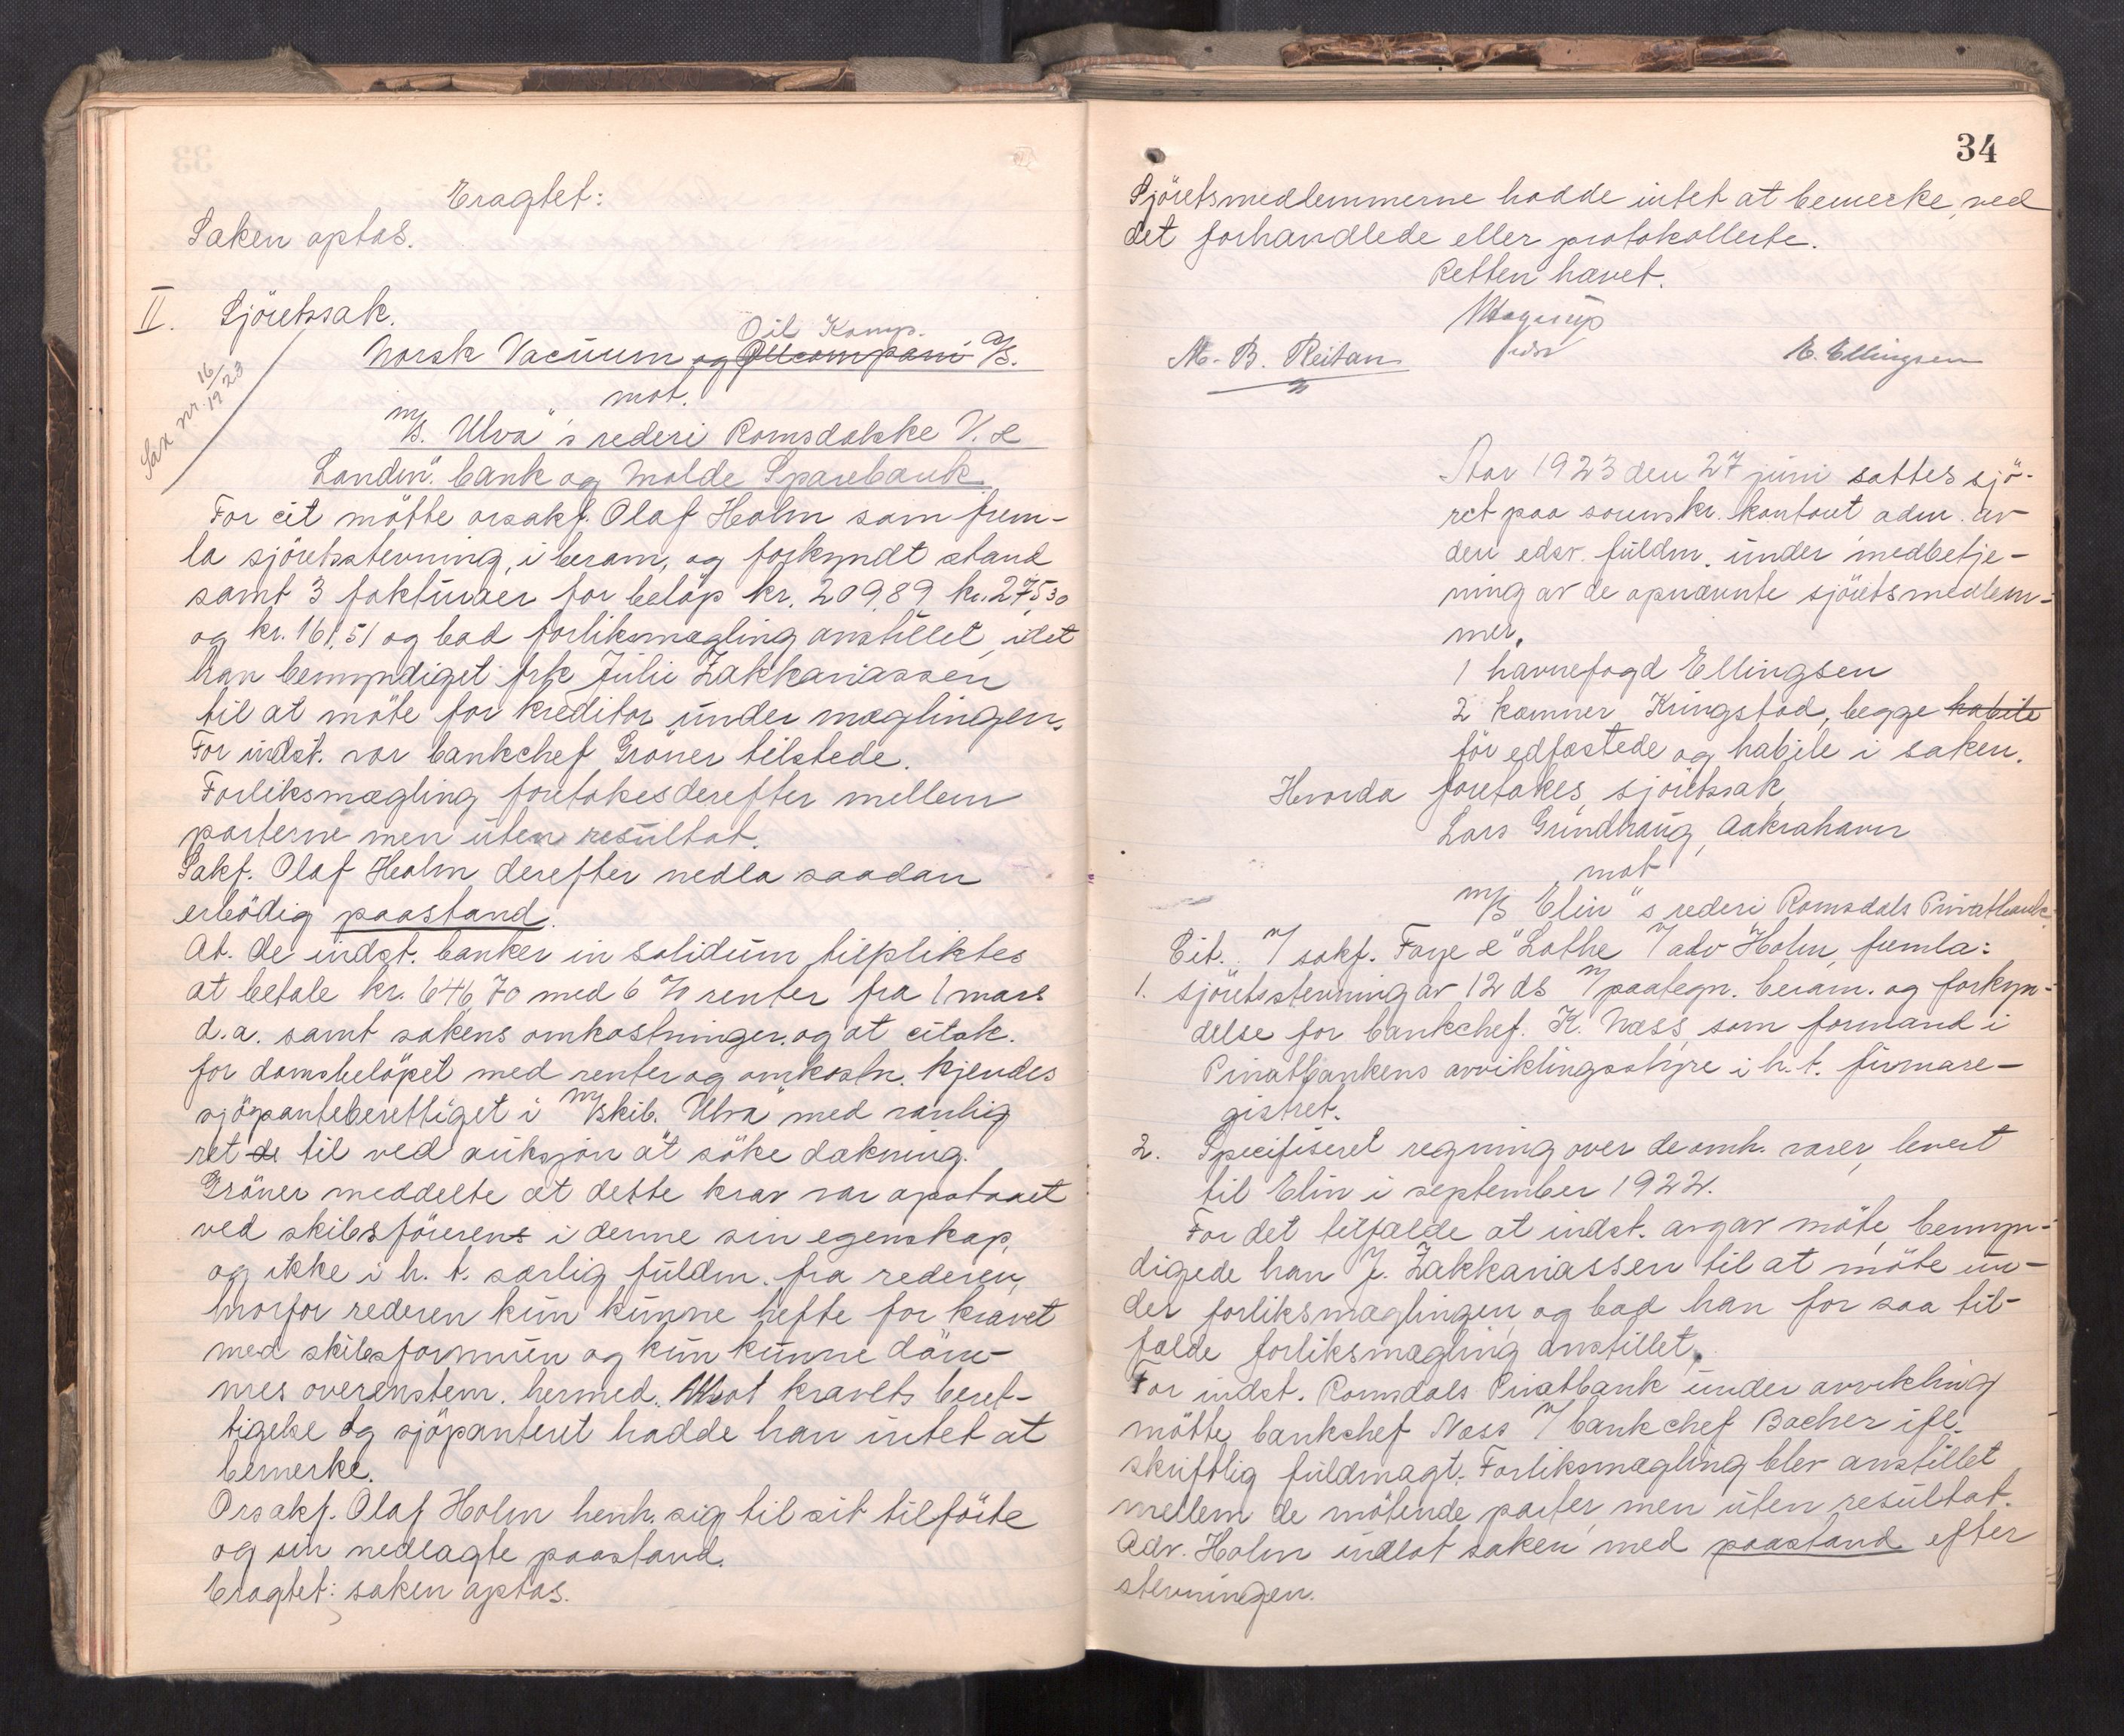 Eragtet:
Saken optas.
II. Sjöretssak.
Sak nr. 16/1923
Oil Komp.
Norsk Vacuum og Oilcompani A/S.
mot.
m/s. Ulva"s rederi Romsdalske V. &
Landm". bank og Molde Sparebank.
For cit mötte orsakf. Olaf Holm som frem-
la sjöretsstevning, i beram, og forkyndt stand
samt 3 fakturaer for belöp kr. 209,89 kr. 275,30
og kr. 161,51 og bad forliksmægling anstillet, idet
han bemyndiget frk Julie Zakkariassen
til at möte for kreditor under mæglingen.
For indst. var bankchef Gröner tilstede.
Forliksmægling foretokes derefter mellem
parterne men uten resultat.
Sakf. Olaf Holm derefter nedla saadan
erbödig paastand.
At. de indst. banker in solidum tilpliktes
at betale kr. 646,70 med 6 % renter fra 1 mars
d.a. samt sakens omkostninger. og at citok.
for domsbelöpet med renter og omkostn. kjendes
sjöpanteberettiget i m/skib. Ulva" med vanlig
ret de til ved auksjon at söke dækning.
Gröner meddelte at dette krav var opstaaet
ved skibsförerens i denne sin egenskap,
og ikke i h. t. særlig fuldm. fra rederen,
hvorfor rederen kun kunne hefte for kravet
med skibsformuen og kun kunne döm-
mes overenstem. hermed. Mot kravets beret-
tigelse og sjöpanteret hadde han intet at
bemerke.
Orsakf. Olaf Holm henh. sig til sit tilförte
og sin nedlagte paastand.
Eragtet: saken optas.
34
Sjöretsmedlemmerne hadde intet at bemerke ved
det forhandlede eller protokollerte.
Retten hævet.
M. B. Reitan
E. Ellingsen
Aar 1923 den 27 juni sattes sjö-
ret paa sorenskr. kontoret adm. av
den edsv. fuldm. under medbetje-
ning av de opnævnte sjöretsmedlem-
mer.
1 havnefogd Ellingsen
2 kæmner Kringstad, begge habile
för edfæstede og habile i saken.
Hvorda foretokes sjöretssak
Lars Grindhaug, Aakrahavn
mot
m/s Elin"s rederi Romsdals Privatbank.
Cit. v/ sakf. Faye & Lothe v/ adv Holm, fremla:
1. sjöretsstevning av 12 ds m/ paategn. beram. og forkyn-
delse for bankchef. K. Næss, som formand i
Privatbankens avviklingsstyre i h. t. firmare-
gistret.
2. Specifiseret regning over de omh. varer, levert
til Elin i september 1922.
For det tilfælde at indst. avgav möte, bemyn-
digede han J. Zakkariassen til at möte un-
der forliksmæglingen, og bad han for saa til-
fælde forliksmægling anstillet.
For indst. Romsdals Privatbank under avvikling
mötte bankchef Næss v/ bankchef Bacher ifl.
skriftlig fuldmagt. Forliksmægling blev anstillet
mellem de mötende parter men uten resultat.
Adv. Holm indlot saken med paastand efter
stevningen.